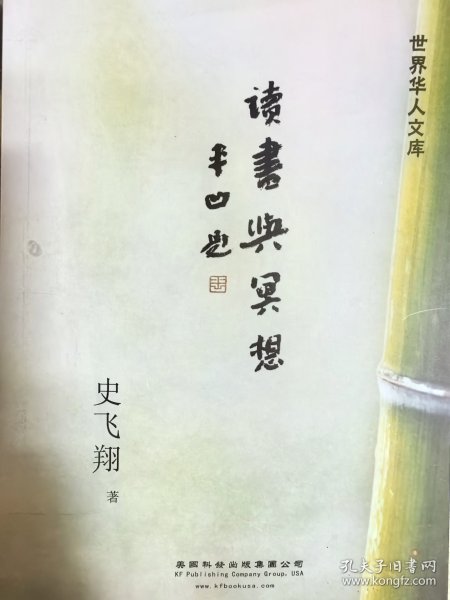 世界华人文库
讀書與冥想
平凹題
史飞翔 著
美國科發出版集團公司
KF Publishing Company Group, USA
www.kfbookusa.com
孔夫子旧书网